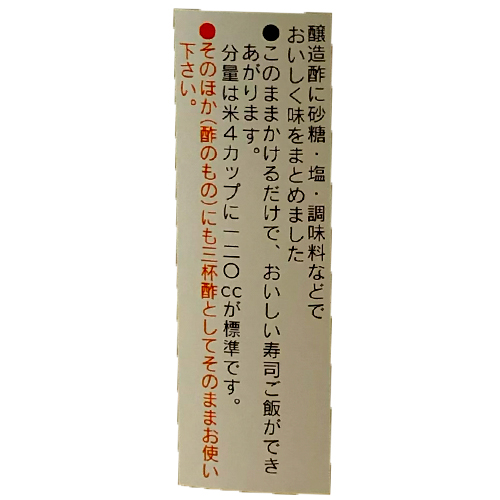 醸造酢に砂糖・塩・調味料などで
おいしく味をまとめました
●このままかけるだけで、おいしい寿司ご飯ができ
あがります。
分量は米４カップに一二〇ccが標準です。
●そのほか(酢のもの)にも三杯酢としてそのままお使い
下さい。